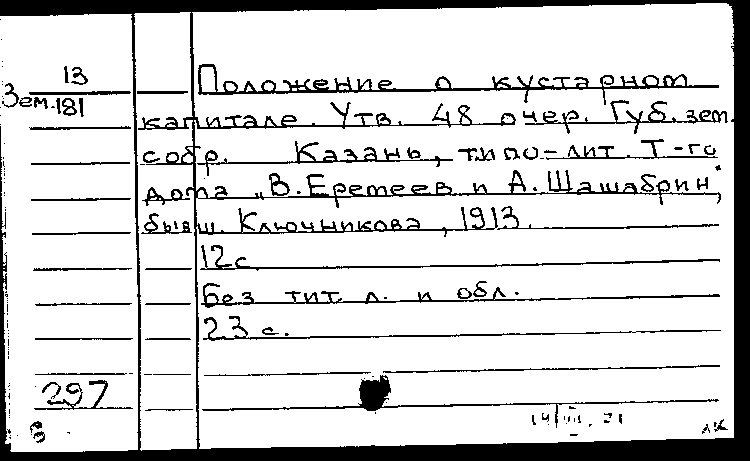 13
Зем.181
Положение о кустарном
капитале. Утв. 48 очер. Губ. зем.
собр. Казань, типо-лит. Т-го
дома „В. Еремеев и А. Шашабрин",
бывш. Ключникова, 1913.
12 с.
Без тит. л. и обл.
23 с.
297
В
14/VII. 71